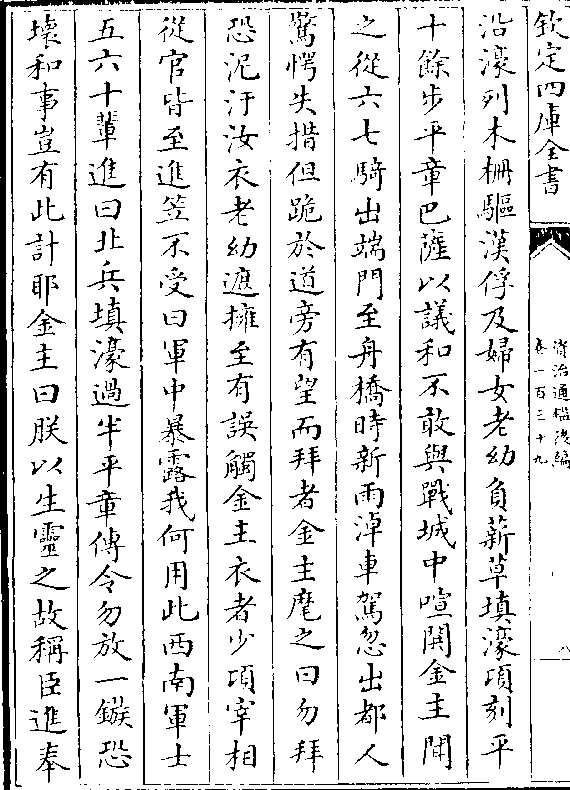 欽定四庫全書
資治通鑑後編
卷一百三十九
八
沿濠列木柵驅漢俘及婦女老幼負薪草填濠頃刻平
十餘步平章巴薩以議和不敢與戰城中喧鬨金主聞
之從六七騎出端門至舟橋時新雨淖車駕忽出都人
驚愕失措但跪於道旁有望而拜者金主麾之曰勿拜
恐泥汙汝衣老幼遮擁至有誤觸金主衣者少項宰相
從官皆至進笠不受曰軍中暴露我何用此西南軍士
五六十輩進曰北兵填濠過半平章傳令勿放一鏃恐
壞和事豈有此計耶金主曰朕以生靈之故稱臣進奉